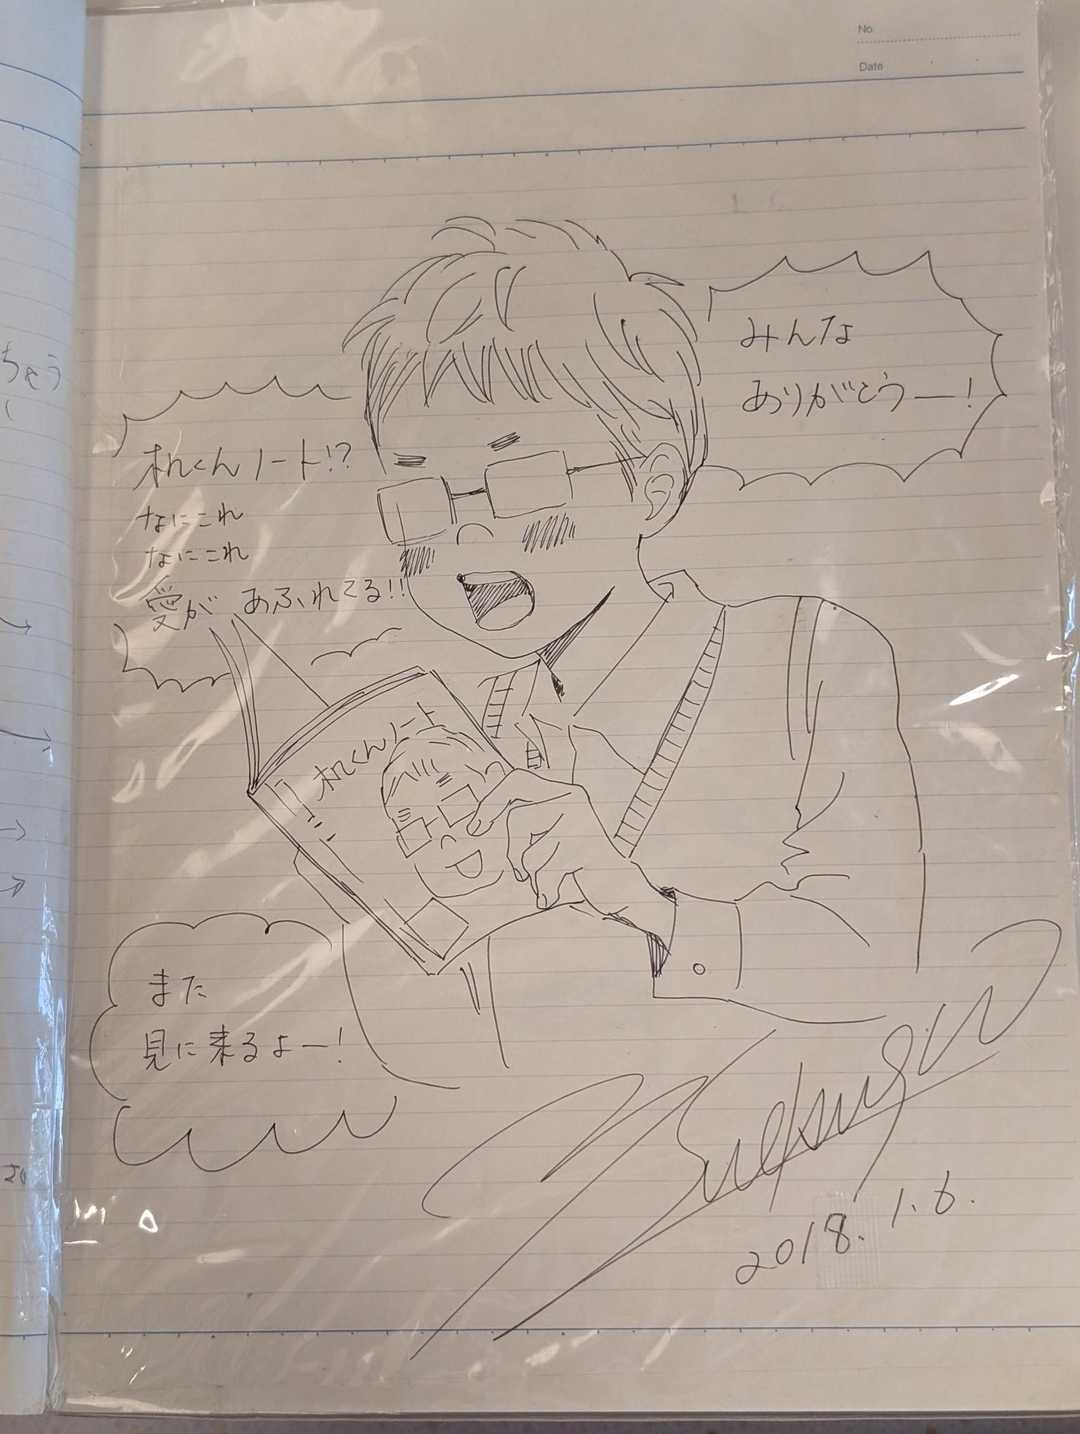 No.
Date
みんな
ありがとうー!
机くんノート!?
なにこれ
なにこれ
愛が あふれてる!!
机くんノート
また
見に来るよー!
2018.1.6.
ちゃう